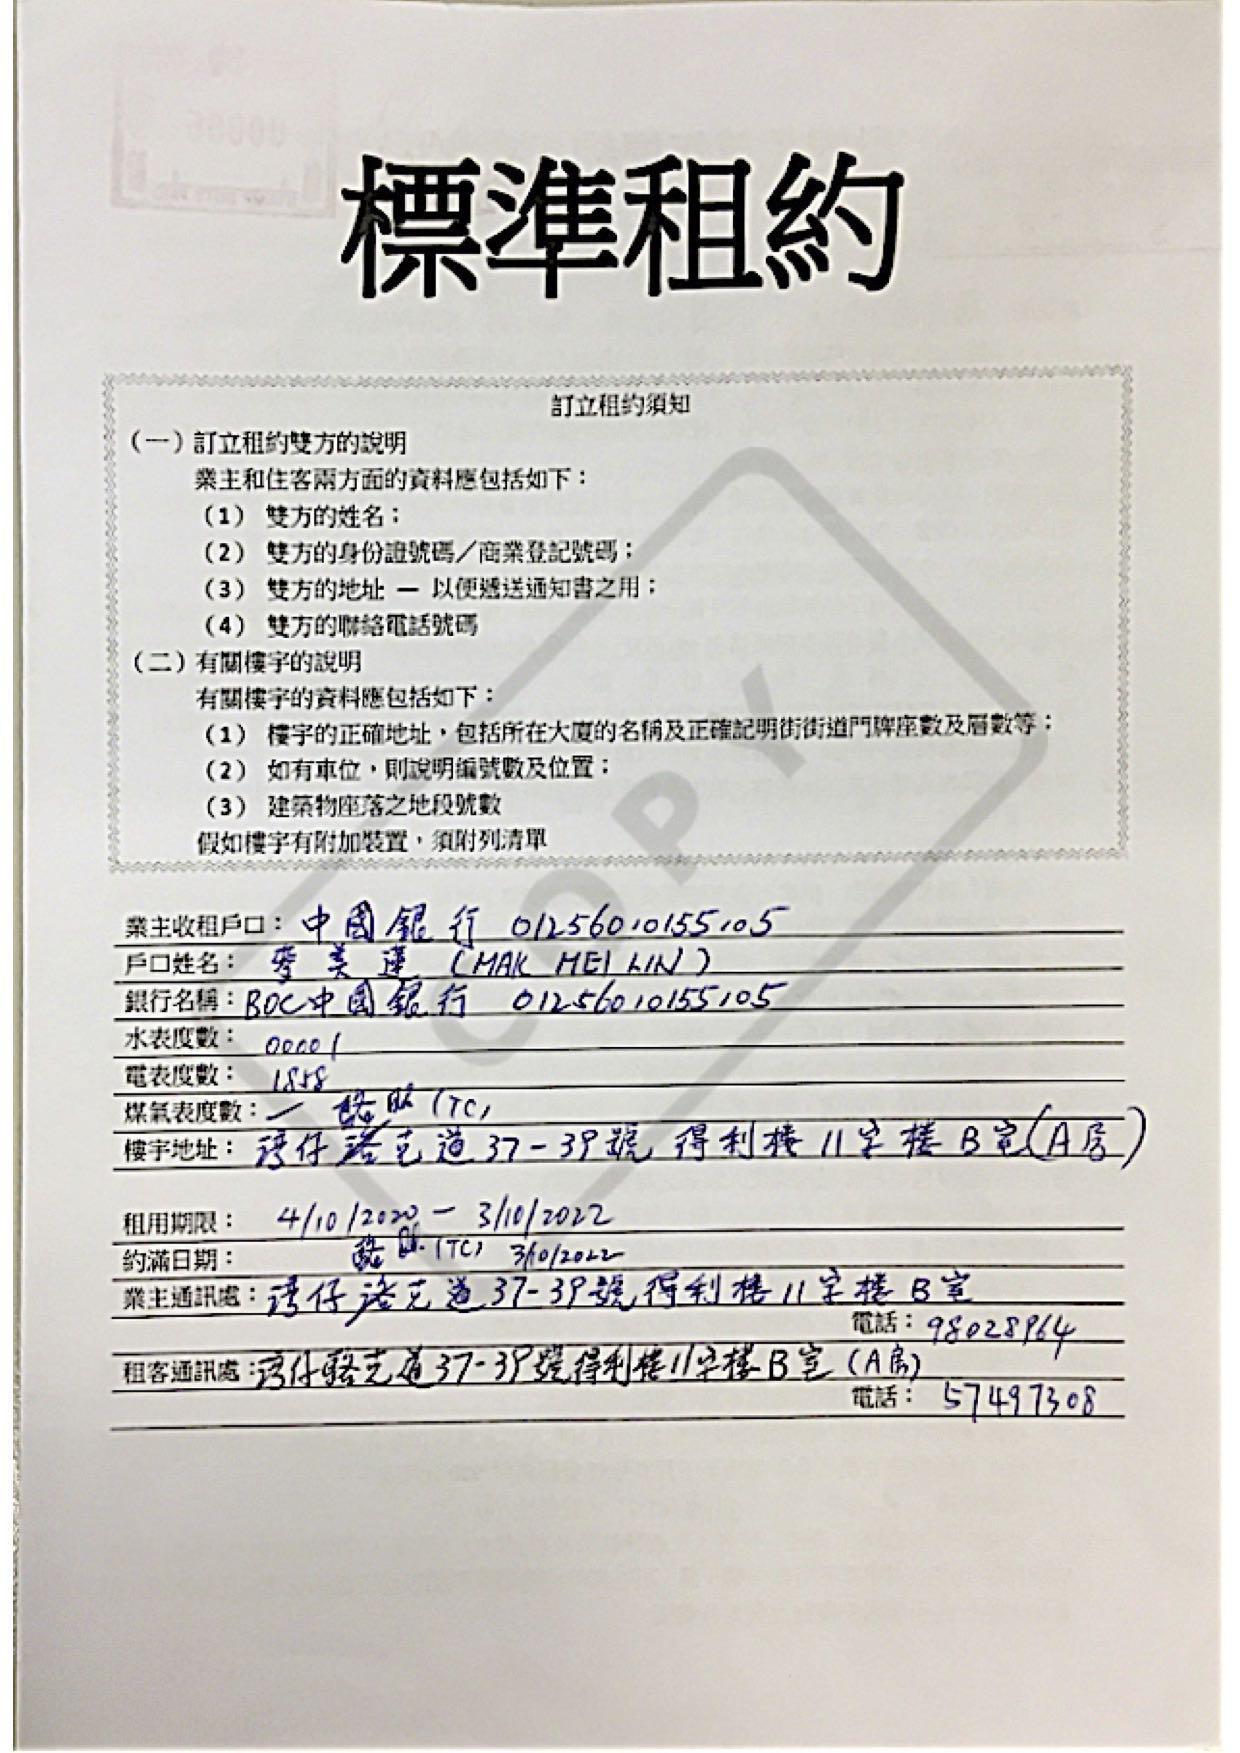 標準租約
訂立租約須知
（一）訂立租約雙方的說明
業主和住客兩方面的資料應包括如下：
（1） 雙方的姓名；
（2） 雙方的身份證號碼／商業登記號碼；
（3） 雙方的地址 — 以便遞送通知書之用；
（4） 雙方的聯絡電話號碼
（二）有關樓宇的說明
有關樓宇的資料應包括如下：
（1） 樓宇的正確地址，包括所在大廈的名稱及正確記明街街道門牌座數及層數等；
（2） 如有車位，則說明編號數及位置；
（3） 建築物座落之地段號數
假如樓宇有附加裝置，須附列清單
COPY
業主收租戶口：中國銀行 01256010155105
戶口姓名：麥美蓮 (MAK MEI LIN)
銀行名稱：BOC中國銀行 01256010155105
水表度數：00001
電表度數：1858
煤氣表度數：— 駱 (TC)
樓宇地址：湾仔洛克道37-39號 得利樓11字樓B室(A房)
租用期限：4/10/2020 — 3/10/2022
約滿日期：駱 (TC) 3/10/2022
業主通訊處：湾仔洛克道37-39號得利樓11字樓B室
電話：98028964
租客通訊處：湾仔駱克道37-39號得利樓11字樓B室(A房)
電話：57497308